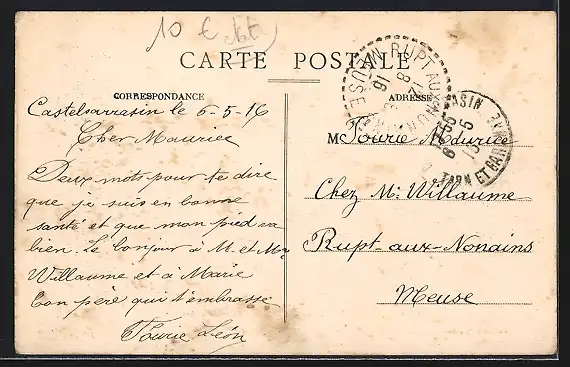 10 € net
CARTE POSTALE
CORRESPONDANCE
ADRESSE
Castelsarrasin le 6-5-16
Cher Maurice
Deux mots pour te dire
que je suis en bonne
santé et que mon pied va
bien. Le bonjour à M. et Mme
Willaume et à Marie
Ton père qui t'embrasse
Tourie Léon
M Tourie Maurice
Chez Mr Willaume
Rupt-aux-Nonains
Meuse
RUPT AUX
TARN ET GAR